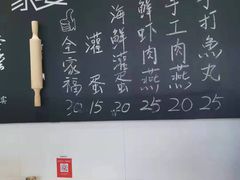 手打魚丸 25
手工肉燕 20
鲜虾肉燕 25
海鲜灌蛋 20
灌蛋 15
全家福 30